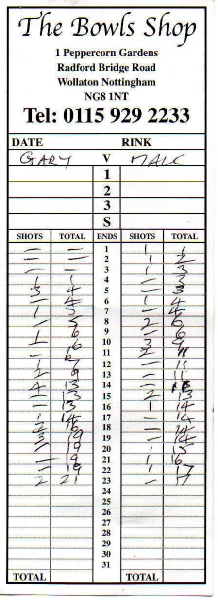 The Bowls Shop
1 Peppercorn Gardens
Radford Bridge Road
Wollaton Nottingham
NG8 1NT
Tel: 0115 929 2233
DATE RINK
GARY V MALC
1
2
3
S
SHOTS TOTAL ENDS SHOTS TOTAL
— — 1 1 1
— — 2 1 2
— — 3 1 3
1 1 4 — 3
3 4 5 — 3
— 4 6 1 4
1 5 7 — 4
— 5 8 2 6
1 6 9 — 6
10 3 9
11 2 11
12 — 11
9 13 — 11
4 13 14 —
— 13 15 2 13
— 13 16 1 14
1 14 17 — 14
2 16 18 — 14
3 19 19 — 14
— 19 20
— 19 21 16
— 19 22 1 17
2 21 23 — 17
24
25
26
27
28
29
30
31
TOTAL TOTAL